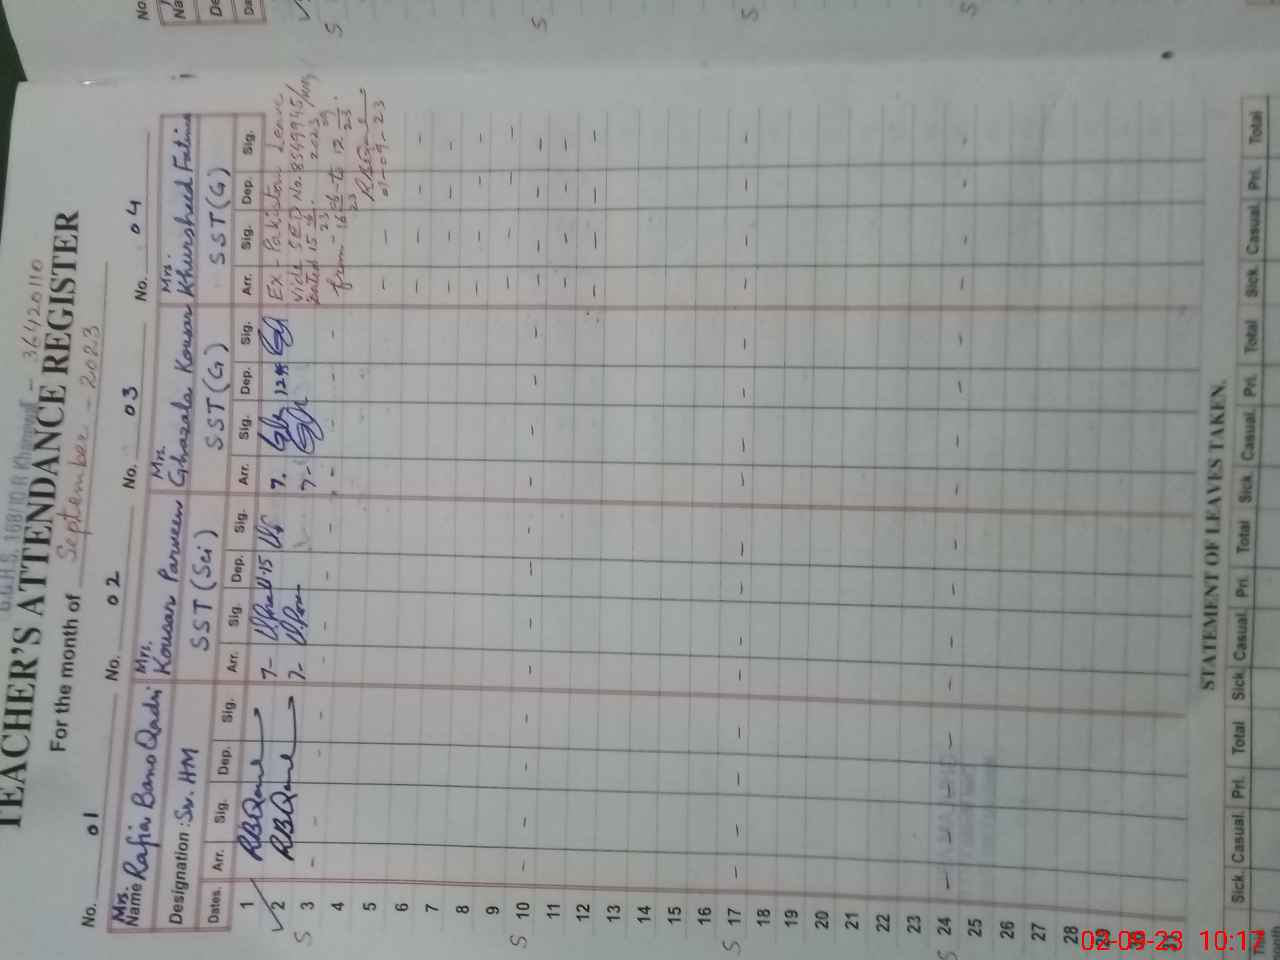 G.G.H.S. 168/10 R Khanewal - 36420110
TEACHER'S ATTENDANCE REGISTER
For the month of September - 2023
No. 01 No. 02 No. 03 No. 04
Mrs. Mrs. Mrs. Mrs.
Name Rafia Bano Qadri Kousar Parveen Ghazala Kousar Khursheed Fatima
Designation : Sr. HM SST (Sci) SST (G) SST (G)
Dates. Arr. Sig. Dep. Sig. Arr. Sig. Dep. Sig. Arr. Sig. Dep. Sig. Arr. Sig. Dep. Sig.
1 7- 11.15 7. Ex - Pakistan Leave
2 7- 7- vide SED No. 8549945/
S 3 Dated 15 2023
4 from - 16 to 12
5 01-09-23
6
7
8
9
S 10
11
12
13
14
15
16
S 17
18
19
20
21
22
23
S 24
25
26
27
28
29
30
31
STATEMENT OF LEAVES TAKEN.
Sick. Casual. Pri. Total Sick. Casual. Pri. Total Sick. Casual. Pri. Total Sick. Casual. Pri. Total
02-09-23 10:17